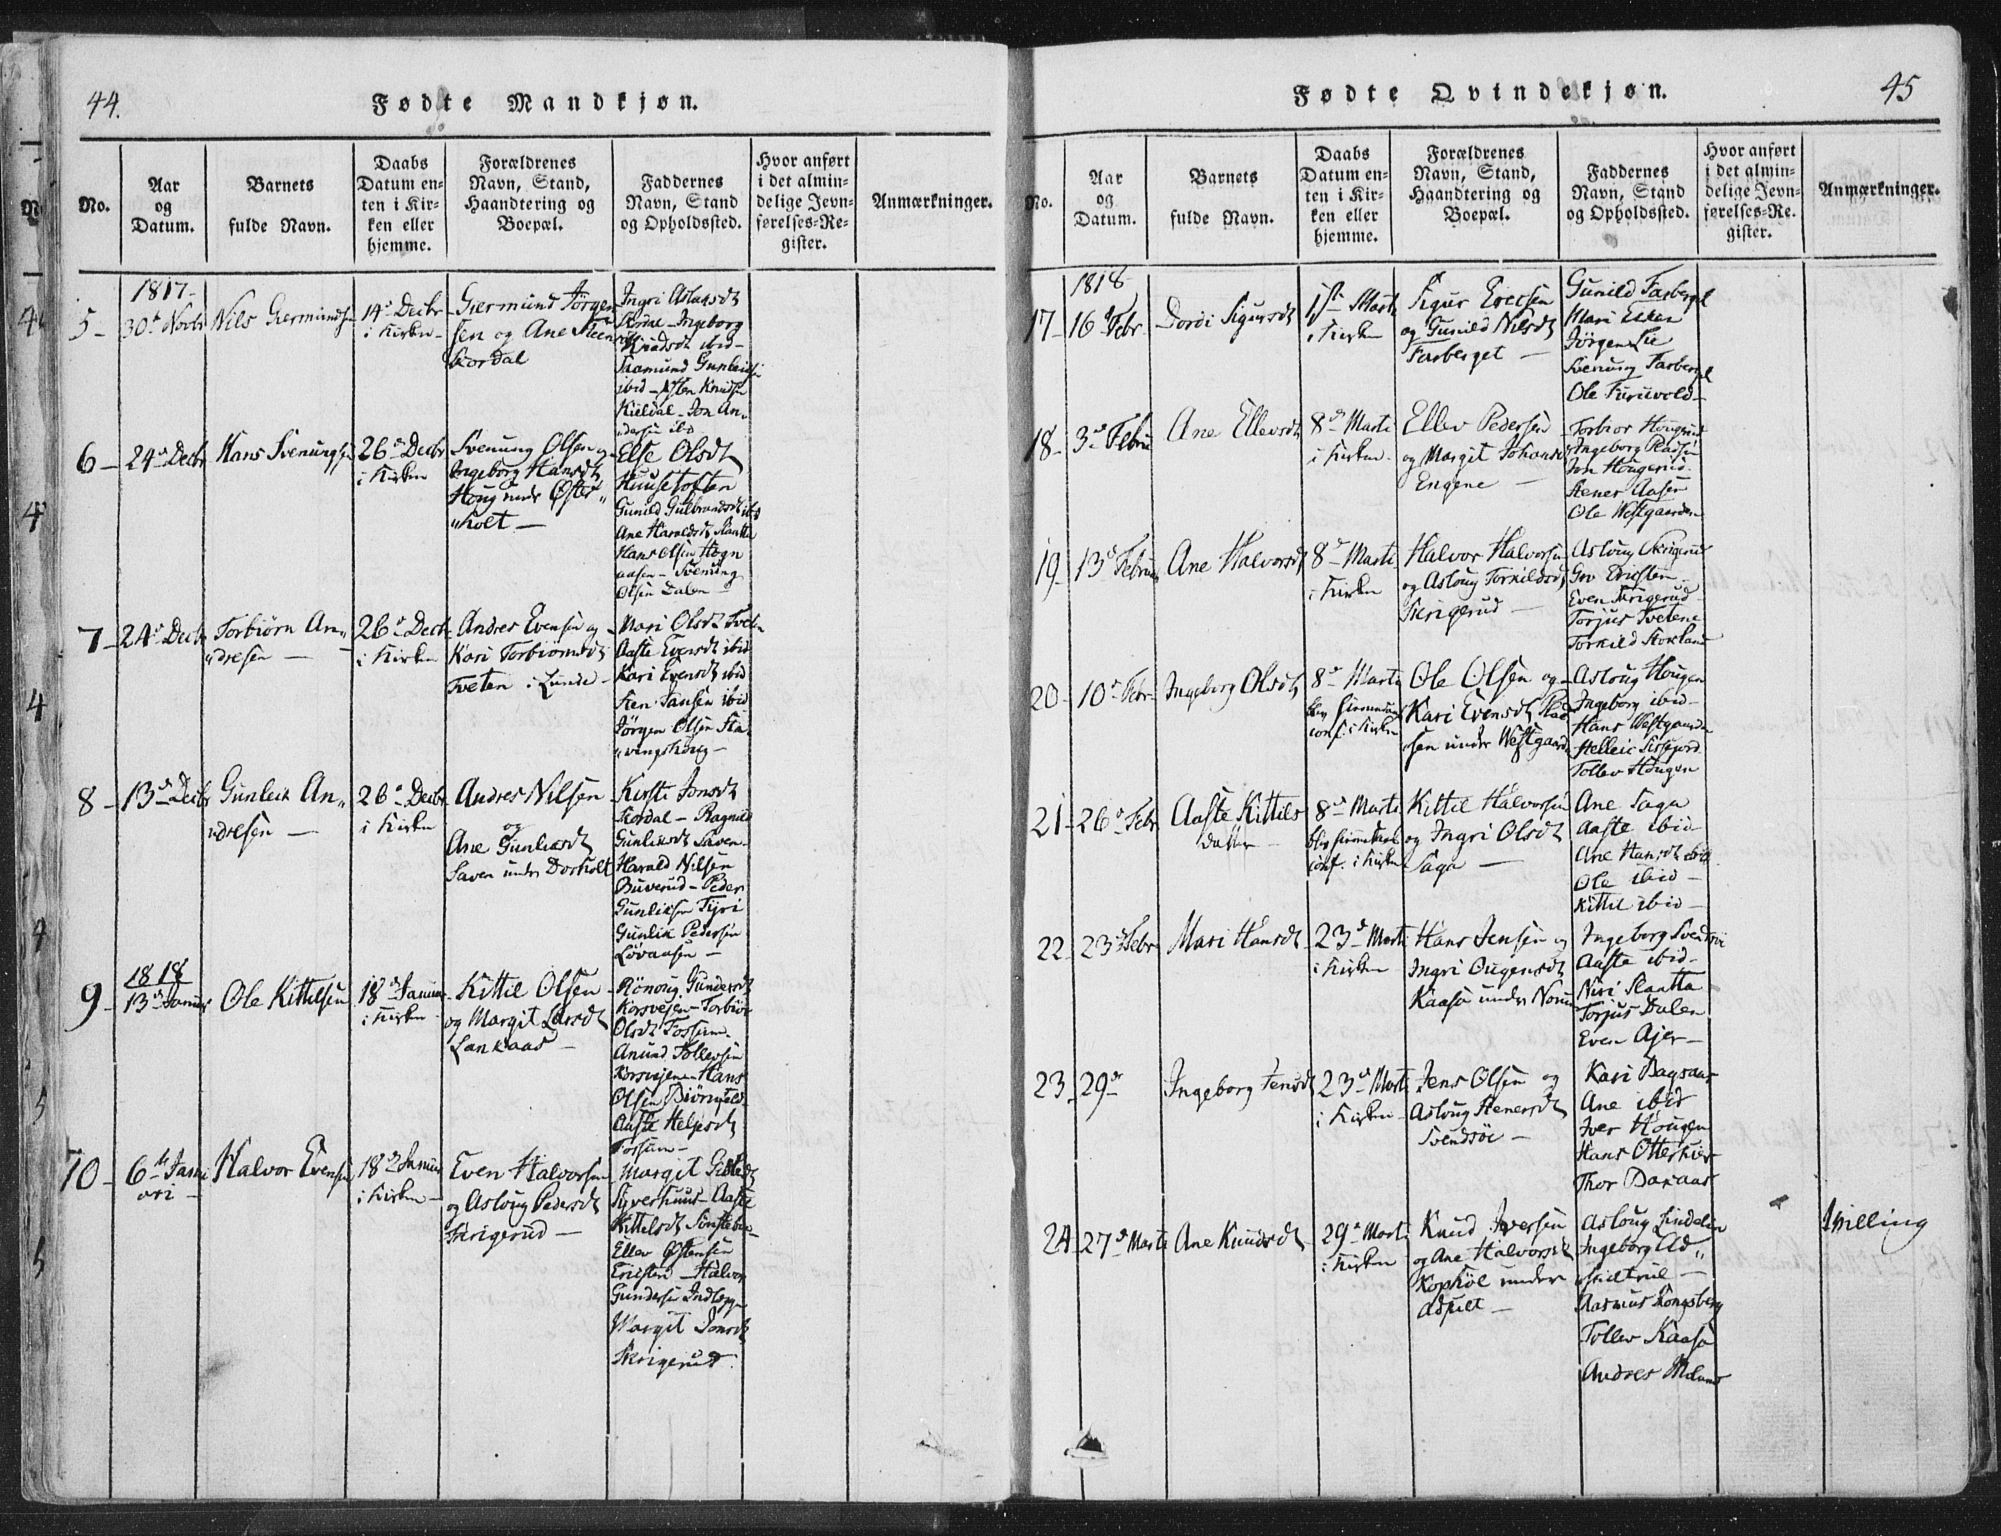 44.
Fødte Mandkjøn.
No.
Aar
og
Datum.
Barnets
fulde Navn.
Daabs
Datum en-
ten i Kir-
ken eller
hjemme.
Forældrenes
Navn, Stand,
Haandtering og
Boepæl.
Faddernes
Navn, Stand
og Opholdssted.
Hvor anført
i det almin-
delige Jevn-
førelses-Re-
gister.
Anmærkninger.
1817.
5-
30te Novbr
Nils Giermunds
14de Decbr
i Kirken-
Giermund Jørgen
sen og Ane
Skordal
Ingri Aslaksdt
Skordal - Ingeborg
Knudsdt ibid-
Saamund Gunleiks
ibid - Østen Knuds
Kieldal - Jon An-
dersen ibd
6-
24de Decbr
Hans Svenungs
26de Decbr
i Kirken
Svenung Olsen og
Ingeborg Hansdt
Houg under Øster-
holt -
Else Olsdt
Huusetoften
Gunild Gulbrandsdt ibd
Ane Haraldsdt Slaatta
Hans Olsen Hogn
aasen - Svenung
Olsen Dalen
7-
24de Decbr
Torbiørn An-
dresen -
26de Decbr
i Kirken
Andres Evensen og
Kari Torbiørnsdt
Tveten i Lunde-
Mari Olsdt Tveten
Aaste Evensdt ibid
Kari Evensdt ibid
Sten Jansen ibid
Jørgen Olsen Sta-
vingshoug -
8-
13de Decbr
Gunleik An-
dresen -
26de Decbr
i Kirken
Andres Nilsen
og
Ane Gunleiksdt
Saven under Dorholt
Kirsti Jonsdt
Skordal - Ragnild
Gunleiksdt Saven-
Harald Nilsen
Buverud - Peder
Gunleiksen Tyri
Gunleik Pedersen
Løvaasen -
1818
9-
13de Januar
Ole Kittelsen
18de Januar
i Kirken
Kittil Olsen
og Margit Larsdt
Lankaas -
Rønoug Gundersdt
Korsvejen - Torbiør
Olsdt Fossum-
Anund Tollevsen
Korsvejen - Hans
Olsen Biørnvald-
Aaste Heljesdt
Fossum -
10-
6te Janu
ari -
Halvor Evensen
18de Januar
i Kirken -
Even Halvorsen
og Asloug Pedersdt
Skrigerud -
Margit Gisledt
Syverhuus - Aaste
Kittelsdt Sønstebøe
Ellev Østensen
Ericsten - Halvor
Gundersen Indlægge
Margit Jonsdt
Skrigerud.
45
Fødte Qvindekjøn.
No.
Aar
og
Datum.
Barnets
fulde Navn.
Daabs
Datum en-
ten i Kir-
ken eller
hjemme.
Forældrenes
Navn, Stand,
Haandtering og
Boepæl.
Faddernes
Navn, Stand
og Opholdssted.
Hvor anført
i det almin-
delige Jevn-
førelses-Re-
gister.
Anmærkninger.
1818
17-
16de Febr.
Dordi Sigursdt
1ste Marti
i Kirken
Sigur Ericsen
og Gunild Nilsdt
Farberget -
Gunild Farberget
Mari
Jørgen Lie
Svenung Farberget
Ole Furuvold-
18-
3de Febru
Ane Ellevsdt
8de Marti
i Kirken-
Ellev Pedersen
og Margit Johansdt
Engene -
Torbior Hougerud
Ingeborg Pladsen
Jon Hougerud
Stener Aasen
Ole Westgaarden
19-
13de Februar
Ane Halvorsdt
8de Marti
i Kirken
Halvor Halvorsen
og Asloug Torkildsdt
Skrigerud -
Asloug Skrigerud
Gro Ericsten
Even Skrigerud
Torjus Tvetene
Torkild Stokland
20-
10de Febr
Ingeborg Olsdt
8de Marti
blev hiemmedøbt
conf. i Kirken
Ole Olsen og
Kari Evensdt Plad
sen under Westgaard
Asloug Hougen
Ingeborg ibid-
Hans Westgaarden
Helleic Sissejord
Tollev Hougen
21-
26de Febr
Aaste Kittils
Datter -
8de Marti
blev hiemmedøbt
conf. i Kirken
Kittil Halvorsen
og Ingri Olsdt
Saga -
Ane Saga
Aaste ibid-
Ane Hansdt ibid
Ole ibid -
Kittil ibid -
22-
23de Febr
Mari Hansdt
23de Marti
i Kirken
Hans Jensen og
Ingri Ougensdt
Kaasa under
Ingeborg Svendsøe
Aaste ibid-
Niri Slaatta
Torjus Dalen
Even Ajer -
23-
29de
Ingeborg Jensdt
23de Marti
i Kirken-
Jens Olsen og
Asloug Stenersdt
Svendsøe -
Kari Bagaas
Ane ibid
Iver Hougen
Hans Otterkier
Thor Bakaas
24-
27de Marti
Ane Knudsdt
29de Marti
i Kirken
Knud Iversen
og Ane Halvorsdt
Kophøl under
Adspelt -
Asloug Lindelien
Ingeborg Ad-
spiltrud -
Rasmus Kongsberg
Tollev Kaasa
Andres Moland
1 skilling